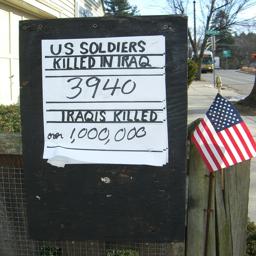 US SOLDIERS
KILLED IN IRAQ
3940
IRAQIS KILLED
over 1,000,000